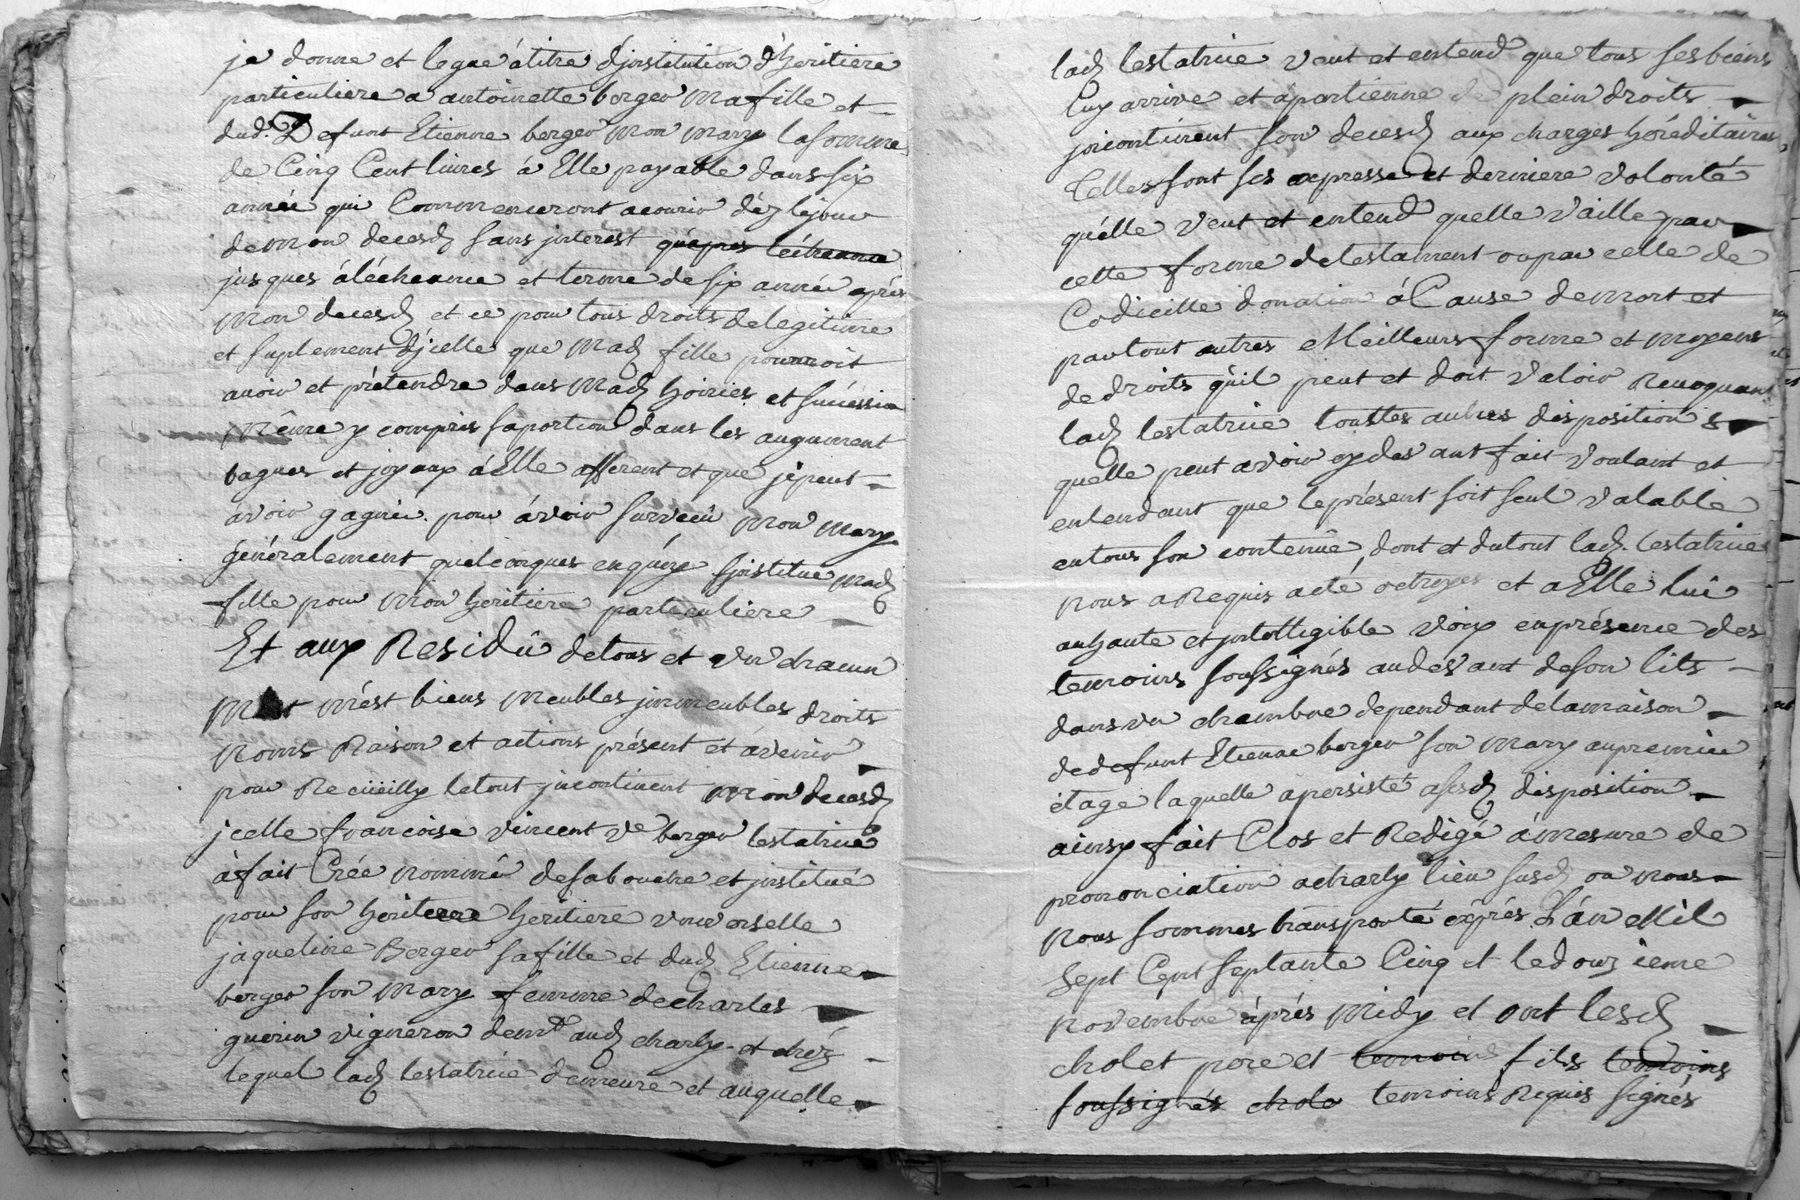 je donne et legue á titre d'jnstitution d'heritiere
particuliere a antoinette berger ma fille et
dud. Defunt Etienne berger mon mary la somme
de Cinq Cent livres á Elle payable dans six
année qui Commenceront acourir déz le jour
de mon deces sans jnterest quápres lécheance
jusques áléchéance et terme de six année aprés
mon deces et ce pour tous droits de legitime
et suplement d'jcelle que mad fille pourroit
avoir et prétendre dans mad hoiries et sucéssion
même y compris saportion dans les augument
bagues et joyaux á Elle afferent et que je peut
ávoir gagnée pour ávoir survecû mon mary
généralement quelconques en quoy j'jnstitue mad
fille pour mon héritiere particuliere
Et aux Residû de tous et un chacun
mést biens meubles jmmeubles droits
noms Raison et actions présent et ávenir
pour Recüeilly le tout jncontinent mon deces
jcelle francoise vincent ve berger testatrice
á fait Créé nommé de sa bouche et jnstitué
pour son heritiere
jaqueline Berger sa fille et dud Etienne
berger son mary femme de charles
guerin vigneron demt aud charly et chéz
lequel lad testatrice demeure et auquelle
lad testatrice veut et entend que tous ses biens
luy arrive et apartienne de plein droits
jncontinent son deces aux charges héréditaires
telles sont ses expresse et derniere volonté
quélle veut et entend quelle vaille par
cette forme de testament ou par celle de
Codicille donation á Cause de mort et
par tout autres Meilleurs forme et moyens
de droits quil peut et doit valoir Revoquant
lad testatrice touttes autres dispositions
quelle peut avoir cy devant fait voulant et
entendant que le présent soit seul valable
en tous son contenûe, dont et du tout lad. testatrice
nous a Requis acte octroyé et a Elle luë
a haute et jntelligible voix en présence des
temoins soussignés au devant de son lits
dans un chambre dependant de la maison
de defunt Etienne berger son mary au premier
étage laquelle a persisté a ses disposition
ainsy fait Clos et Redigé á mesure de
prononciation a charly lieu susd ou nous
nous sommes transporté exprés L'an Mil
Sept Cent septante Cinq et le douzieme
novembre áprés midy et ont lesd
cholet pere et temoins fils temoins
soussignés chole temoins Requis signés